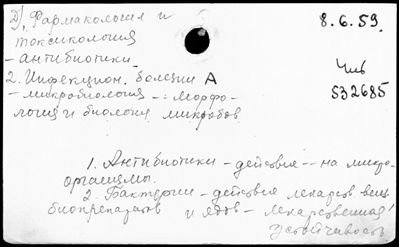 Д), Фармакология и
токсикология
- антибиотики.
2. Инфекцион. болезни А
- микробиология -: Морфо-
логия и биология микробов
8.6.59.
Чив
532685
1. Антибиотики - действия -- на микро-
организмы.
2. Бактерии - действия лекарств. вещ.
биопрепаратов и ядов - лекарственная
устойчивость